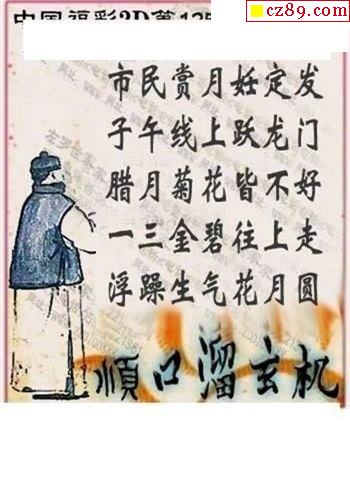 cz89.com
中国福彩3D第135
市民赏月妊定发
子午线上跃龙门
腊月菊花皆不好
一三金碧往上走
浮躁生气花月圆
順口溜玄机